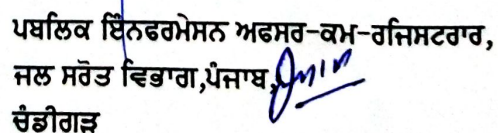 ਪਬਲਿਕ ਇੰਨਫਰਮੇਸਨ ਅਫਸਰ-ਕਮ-ਰਜਿਸਟਰਾਰ,
ਜਲ ਸਰੋਤ ਵਿਭਾਗ,ਪੰਜਾਬ,
ਚੰਡੀਗੜ